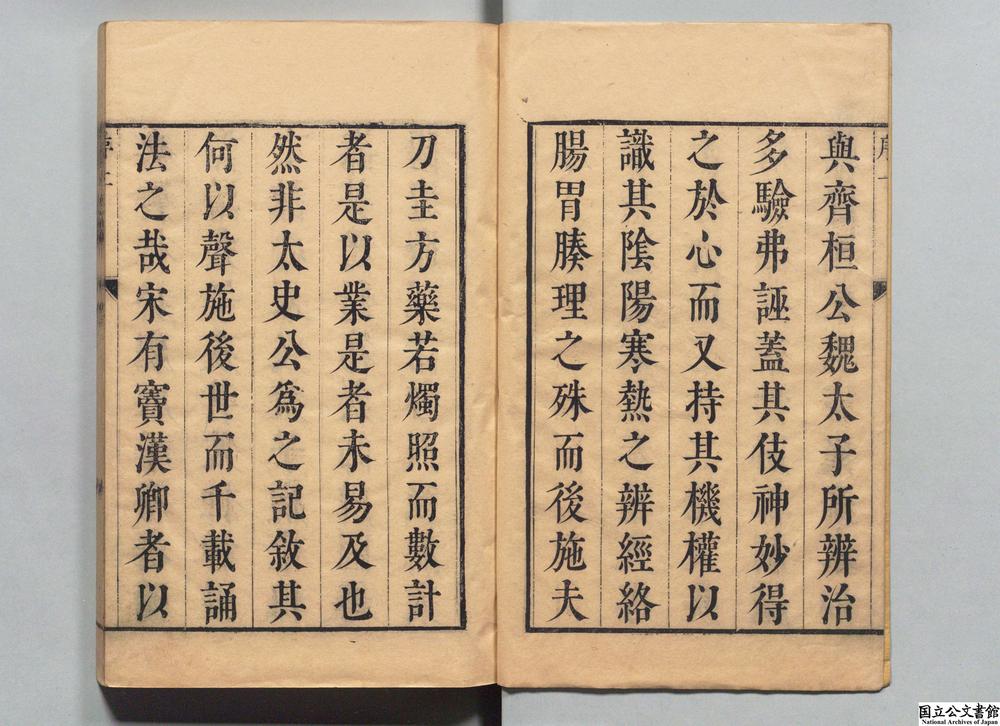 與齊桓公魏太子所辨治
多驗弗誣蓋其伎神妙得
之於心而又持其機權以
識其陰陽寒熱之辨經絡
腸胃腠理之殊而後施夫
刀圭方藥若燭照而數計
者是以業是者未易及也
然非太史公為之記敘其
何以聲施後世而千載誦
法之哉宋有竇漢卿者以
国立公文書館
National Archives of Japan